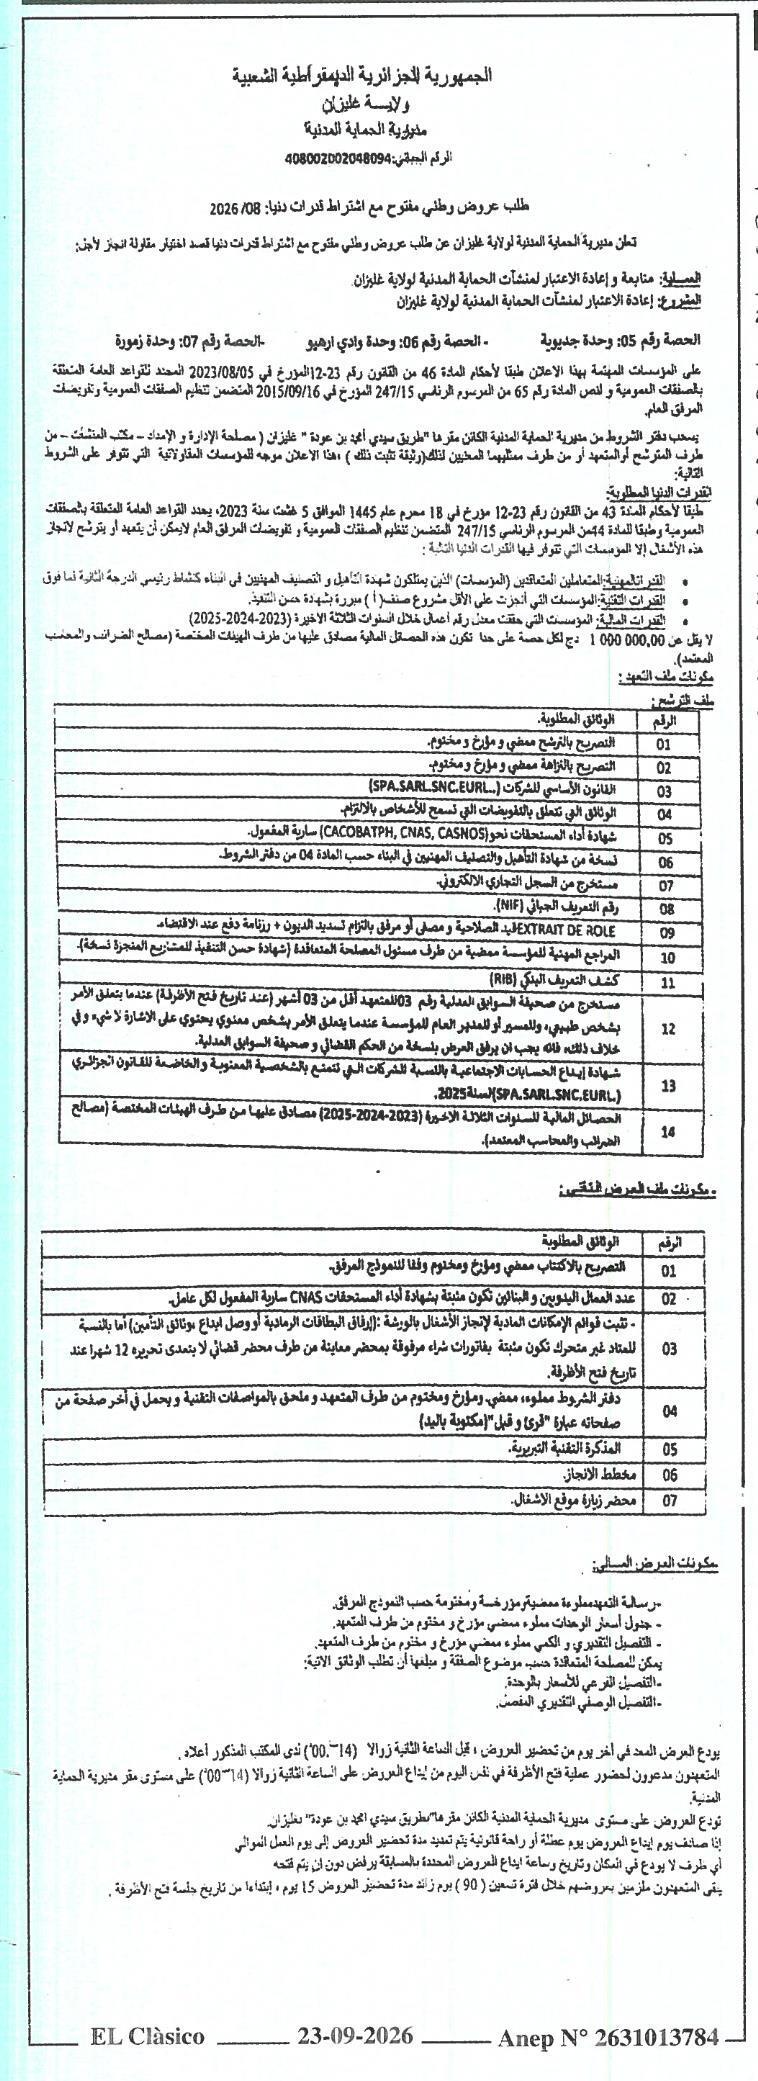 الجمهورية الجزائرية الديمقراطية الشعبية
ولايـــة غليزان
مديرية الحماية المدنية
الرقم الجبائي:408002002048094
طلب عروض وطني مفتوح مع اشتراط قدرات دنيا: 2026/08
تعلن مديرية الحماية المدنية لولاية غليزان عن طلب عروض وطني مفتوح مع اشتراط قدرات دنيا قصد اختيار مقاولة انجاز لأجل:
العملية: متابعة و إعادة الاعتبار لمنشآت الحماية المدنية لولاية غليزان
المشروع: إعادة الاعتبار لمنشآت الحماية المدنية لولاية غليزان
الحصة رقم 05: وحدة جديوية - الحصة رقم 06: وحدة وادي ارهيو -الحصة رقم 07: وحدة زمورة
على المؤسسات المهتمة بهذا الاعلان طبقا لأحكام المادة 46 من القانون رقم 23-12المؤرخ في 2023/08/05 المحدد للقواعد العامة المتعلقة
بالصفقات العمومية و لنص المادة رقم 65 من المرسوم الرئاسي 247/15 المؤرخ في 2015/09/16 المتضمن تنظيم الصفقات العمومية وتفويضات
المرفق العام.
يسحب دفتر الشروط من مديرية الحماية المدنية الكائن مقرها "طريق سيدي أمحمد بن عودة " غليزان ( مصلحة الإدارة و الإمداد – مكتب المنشآت – من
طرف المترشح أوالمتعهد أو من طرف ممثليهما المعنيين لذلك(وثيقة تثبت ذلك ) ،هذا الاعلان موجه للمؤسسات المقاولاتية التي تتوفر على الشروط
التالية:
القدرات الدنيا المطلوبة:
طبقا لأحكام المادة 43 من القانون رقم 23-12 مؤرخ في 18 محرم عام 1445 الموافق 5 غشت سنة 2023، يحدد القواعد العامة المتعلقة بالصفقات
العمومية وطبقا للمادة 44من المرسوم الرئاسي 247/15 المتضمن تنظيم الصفقات العمومية و تفويضات المرفق العام لايمكن أن يتعهد أو يترشح لانجاز
هذه الأشغال إلا المؤسسات التي تتوفر فيها القدرات الدنيا التالية :
• القدرات المهنية: المتعاملين المتعاقدين (المؤسسات) الذين يمتلكون شهادة التأهيل و التصنيف المهنيين في البناء كنشاط رئيسي الدرجة الثانية فما فوق
• القدرات التقنية: المؤسسات التي أنجزت على الأقل مشروع صنف( أ ) مبررة بشهادة حسن التنفيذ.
• القدرات المالية: المؤسسات التي حققت معدل رقم أعمال خلال السنوات الثلاثة الاخيرة (2023-2024-2025)
لا يقل عن 1 000 000,00 دج لكل حصة على حدا تكون هذه الحصائل المالية مصادق عليها من طرف الهيئات المختصة (مصالح الضرائب والمحاسب
المعتمد).
مكونات ملف التعهد :
ملف الترشح :
الرقم الوثائق المطلوبة.
01 التصريح بالترشح ممضي و مؤرخ و مختوم.
02 التصريح بالنزاهة ممضي و مؤرخ و مختوم.
03 القانون الأساسي للشركات (..SPA.SARL.SNC.EURL)
04 الوثائق التي تتعلق بالتفويضات التي تسمح للأشخاص بالالتزام.
05 شهادة أداء المستحقات نحو(CACOBATPH, CNAS, CASNOS) سارية المفعول.
06 نسخة من شهادة التأهيل والتصنيف المهنيين في البناء حسب المادة 04 من دفتر الشروط.
07 مستخرج من السجل التجاري الالكتروني.
08 رقم التعريف الجبائي (NIF).
09 EXTRAIT DE ROLEقيد الصلاحية و مصفى أو مرفق بالتزام تسديد الديون + رزنامة دفع عند الاقتضاء.
10 المراجع المهنية للمؤسسة ممضية من طرف مسئول المصلحة المتعاقدة (شهادة حسن التنفيذ للمشاريع المنجزة نسخة).
11 كشف التعريف البنكي (RIB)
12 مستخرج من صحيفة السوابق العدلية رقم 03للمتعهد أقل من 03 أشهر (عند تاريخ فتح الأظرفة) عندما يتعلق الأمر
بشخص طبيعي، وللمسير أو للمدير العام للمؤسسة عندما يتعلق الأمر بشخص معنوي يحتوي على الاشارة لا شيء و في
خلاف ذلك، فانه يجب ان يرفق العرض بنسخة من الحكم القضائي و صحيفة السوابق العدلية.
13 شهادة إيداع الحسابات الاجتماعية بالنسبة للشركات التي تتمتع بالشخصية المعنوية و الخاضعة للقانون الجزائري
(..SPA.SARL.SNC.EURL)لسنة2025.
14 الحصائل المالية للسنوات الثلاثة الاخيرة (2023-2024-2025) مصادق عليها من طرف الهيئات المختصة (مصالح
الضرائب والمحاسب المعتمد).
- مكونات ملف العرض التقني :
الرقم الوثائق المطلوبة
01 التصريح بالاكتتاب ممضي ومؤرخ ومختوم وفقا للنموذج المرفق.
02 عدد العمال اليدويين و البنائين تكون مثبتة بشهادة أداء المستحقات CNAS سارية المفعول لكل عامل.
03 - تثبت قوائم الإمكانات المادية لإنجاز الأشغال بالورشة :(إرفاق البطاقات الرمادية أو وصل ايداع ،وثائق التأمين) أما بالنسبة
للعتاد غير متحرك تكون مثبتة بفاتورات شراء مرفوقة بمحضر معاينة من طرف محضر قضائي لا يتعدى تحريره 12 شهرا عند
تاريخ فتح الأظرفة.
04 دفتر الشروط مملوء، ممضي، ومؤرخ ومختوم من طرف المتعهد و ملحق بالمواصفات التقنية و يحمل في أخر صفحة من
صفحاته عبارة "قرئ و قبل"(مكتوبة باليد)
05 المذكرة التقنية التبريرية.
06 مخطط الانجاز.
07 محضر زيارة موقع الاشغال.
-مكونات العرض المـــالي:
-رسالة التعهدمملوءة ممضية ومؤرخـة ومختومة حسب النموذج المرفق.
- جدول أسعار الوحدات مملوء ممضي مؤرخ و مختوم من طرف المتعهد.
- التفصيل التقديري و الكمي مملوء ممضي مؤرخ و مختوم من طرف المتعهد.
يمكن للمصلحة المتعاقدة حسب موضوع الصفقة و مبلغها أن تطلب الوثائق الاتية:
-التفصيل الفرعي للأسعار بالوحدة.
-التفصيل الوصفي التقديري المفصل.
يودع العرض المعد في أخر يوم من تحضير العروض ، قبل الساعة الثانية زوالا (14:00) لدى المكتب المذكور أعلاه .
المتعهدون مدعوون لحضور عملية فتح الأظرفة في نفس اليوم من إيداع العروض على الساعة الثانية زوالا (14:00) على مستوى مقر مديرية الحماية
المدنية.
تودع العروض على مستوى مديرية الحماية المدنية الكائن مقرها"طريق سيدي امحمد بن عودة" بغليزان.
إذا صادف يوم إيداع العروض يوم عطلة أو راحة قانونية يتم تمديد مدة تحضير العروض إلى يوم العمل الموالي
أي ظرف لا يودع في المكان وتاريخ وساعة ايداع العروض المحددة بالمسابقة يرفض دون ان يتم فتحه
يبقى المتعهدون ملزمين بعروضهم خلال فترة تسعين ( 90 ) يوم زائد مدة تحضير العروض 15 يوم ، إبتداءا من تاريخ جلسة فتح الأظرفة .
EL Clàsico 23-09-2026 Anep N° 2631013784